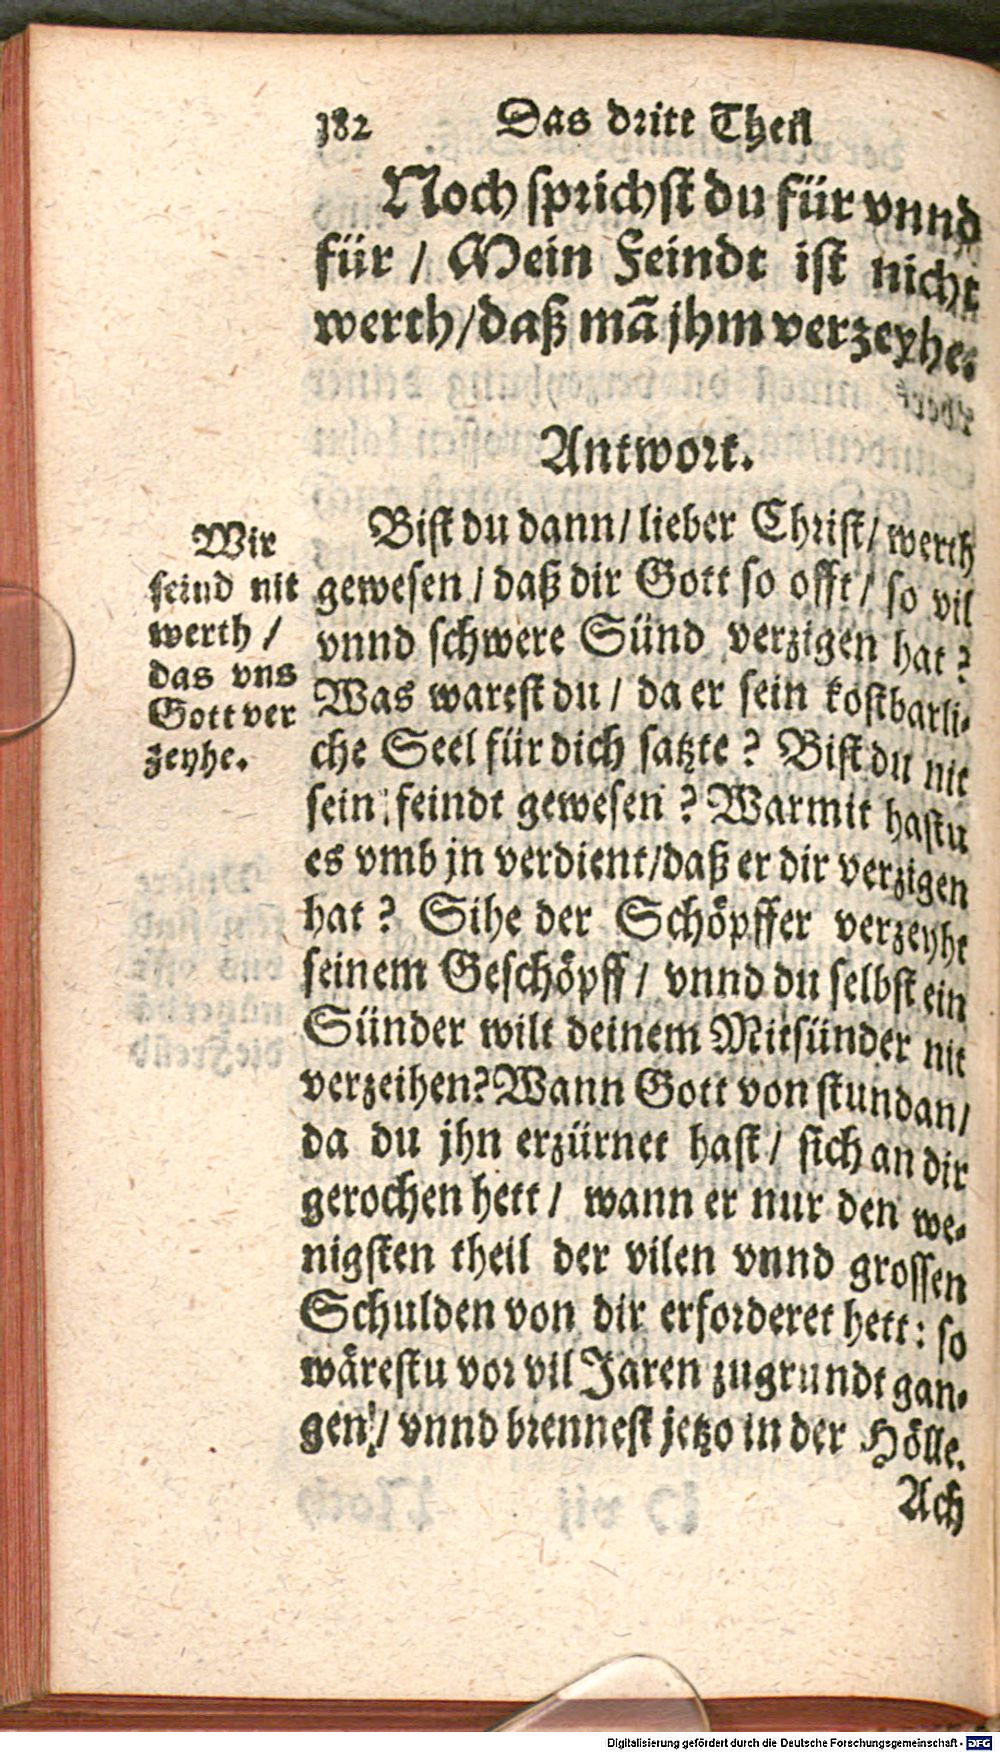 382 Das dritt Theil
Noch sprichst du für vnnd
für / Mein Feindt ist nicht
werth / daß mã jhm verzeyhe.
Antwort.
Bist du dann / lieber Christ / werth
gewesen / daß dir Gott so offt / so vil
vnnd schwere Sünd verzigen hat ?
Was warest du / da er sein kostbarli-
che Seel für dich satzte ? Bist du nit
sein feindt gewesen ? Warmit hastu
es vmb jn verdient / daß er dir verzigen
hat ? Sihe der Schöpffer verzeyht
seinem Geschöpff / vnnd du selbst ein
Sünder wilt deinem Mitsünder nit
verzeihen? Wann Gott von stundan /
da du jhn erzürnet hast / sich an dir
gerochen hett / wann er nur den we-
nigsten theil der vilen vnnd grossen
Schulden von dir erforderet hett : so
wärestu vor vil Jaren zugrundt gan-
gen / vnnd brennest jetzo in der Hölle.
Ach
Wir
seind nit
werth /
das vns
Gott ver
zeyhe.
Digitalisierung gefördert durch die Deutsche Forschungsgemeinschaft - DFG